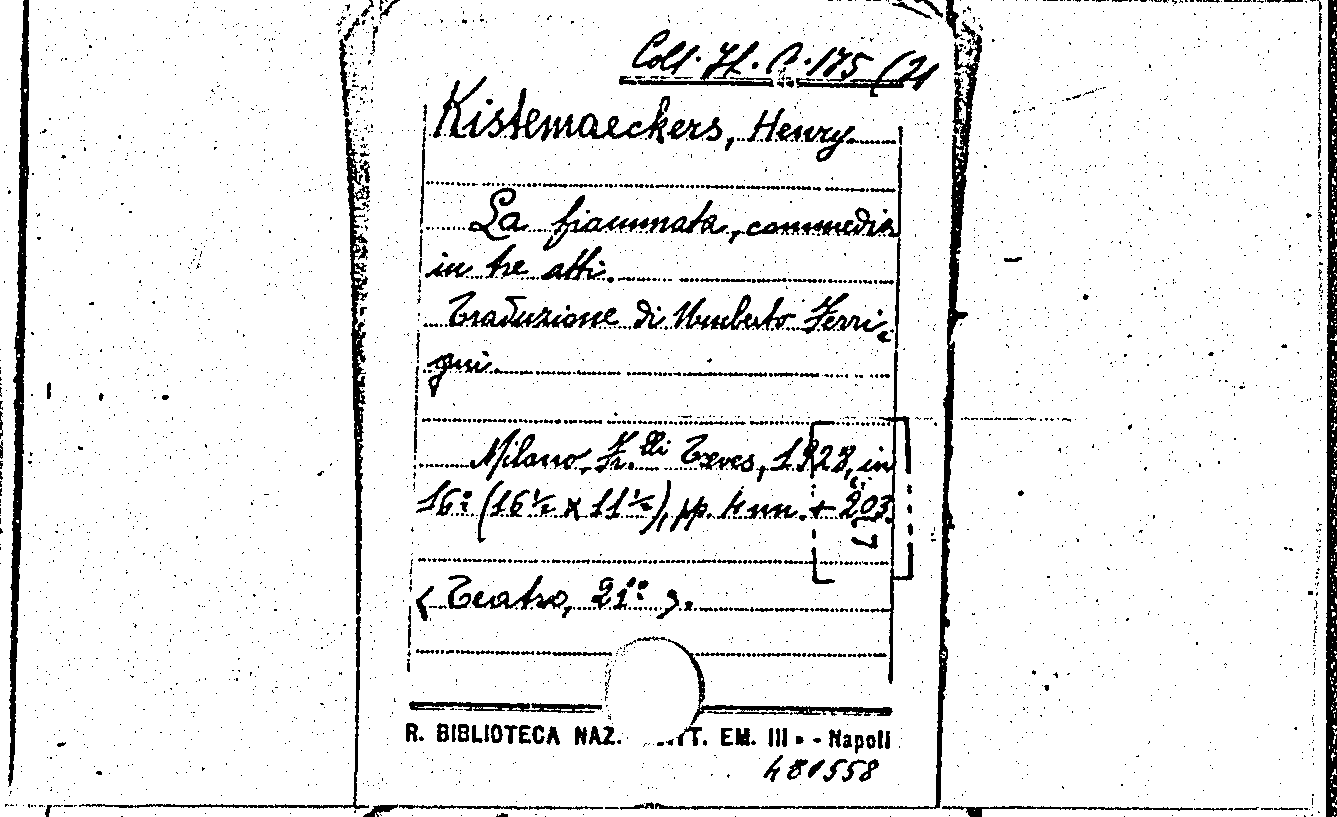 Coll. It. A. 175 (21
Kistemaeckers, Henry.
La fiammata, commedia
in tre atti.
Traduzione di Umberto Ferri-
gni.
Milano, Fr.lli Treves, 1928, in
16° (16½ x 11½), pp. 4 nn. + 203.
(Teatro, 21°).
R. BIBLIOTECA NAZ. ITT. EM. III - Napoli
481558